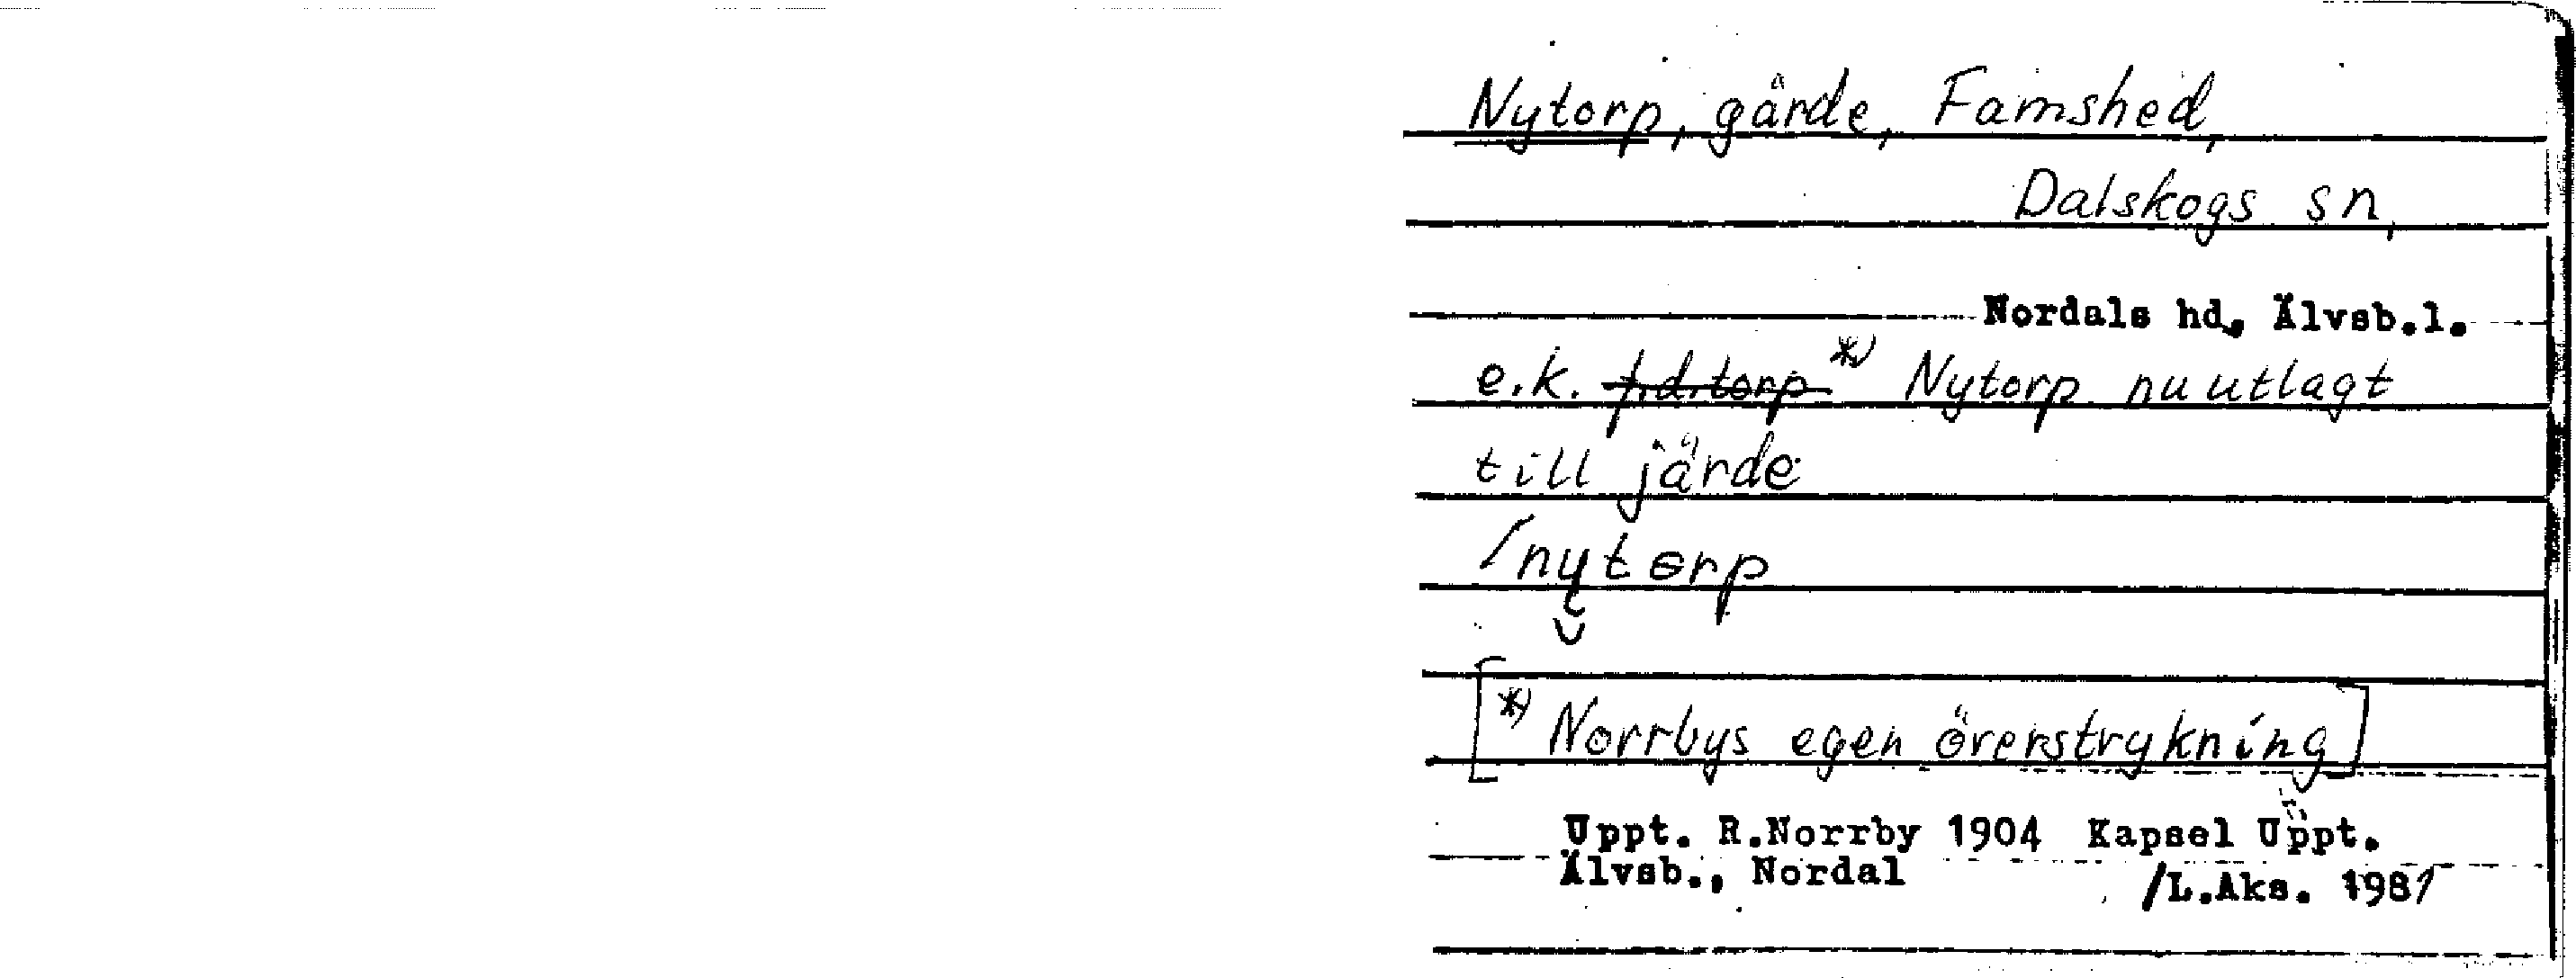 Nytorp, gärde, Famshed,
Dalskogs sn,
Nordals hd, Älvsb.l.
e.k. f.d.torp *) Nytorp nu utlagt
till järde
/nytɵrp
[*) Norrbys egen överstrykning]
Uppt. R.Norrby 1904 Kapsel Uppt.
Älvsb., Nordal /L.Aks. 1981